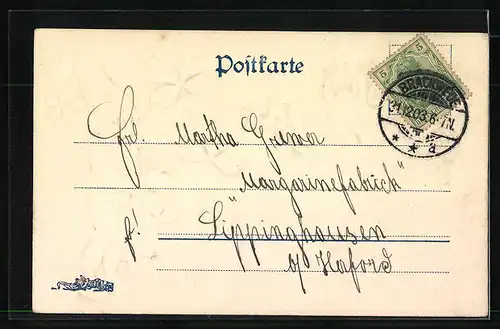 Postkarte
5 5
BRACKWEDE
31.12.03.6-7N.
* * a
Frl. Martha Gremer
"Margarinefabrick"
Lippinghausen
b/ Haford